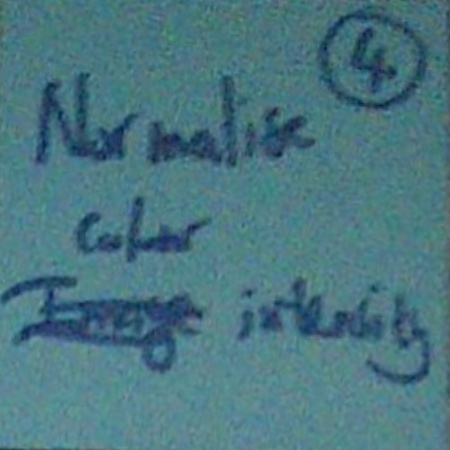 4
Normalise
color
Image intensity